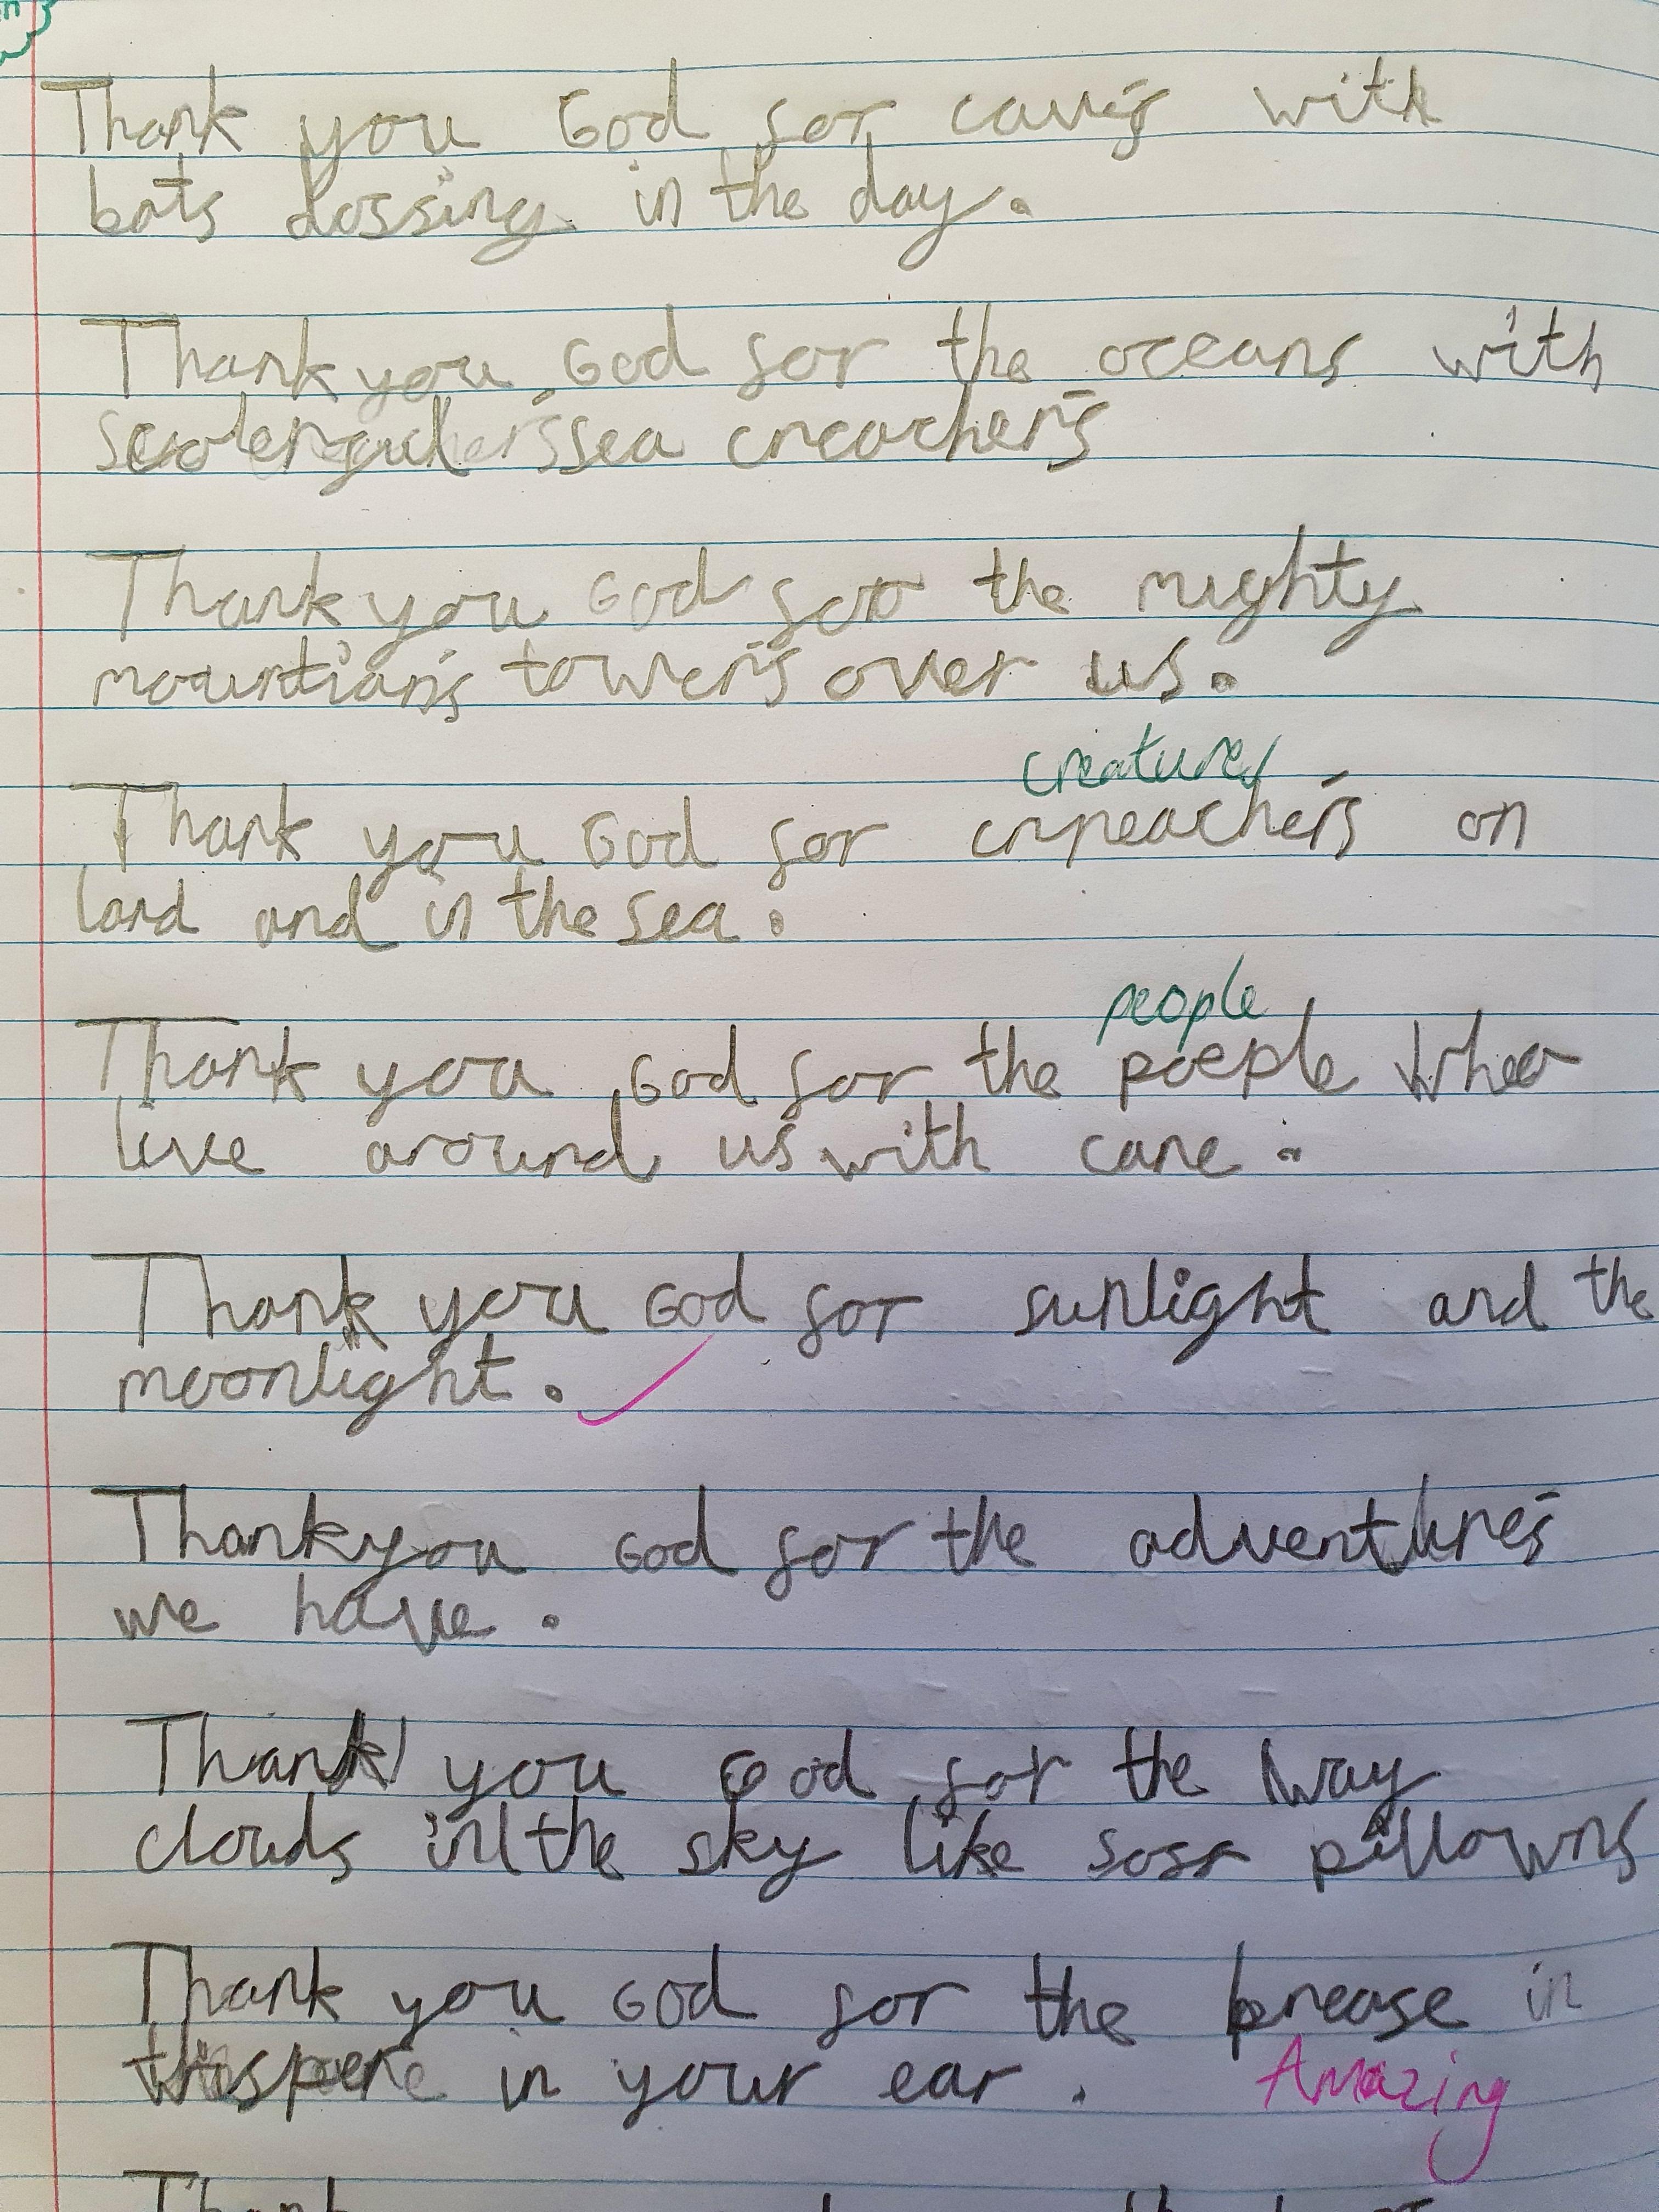 Thank you God for caves with
bats dossing in the day.
Thank you God for the oceans with
sea creacher's
Thank you God for the mighty
mountian's tower's over us.
creatures
Thank you God for crpeacher's on
land and in the sea.
people
Thank you God for the poeple who
live around us with care.
Thank you God for sunlight and the
moonlight.
Thank you God for the adventure's
we have.
Thank you God for the way
clouds in the sky like soft pillowns
Thank you God for the brease in
whispere in your ear.
Amazing